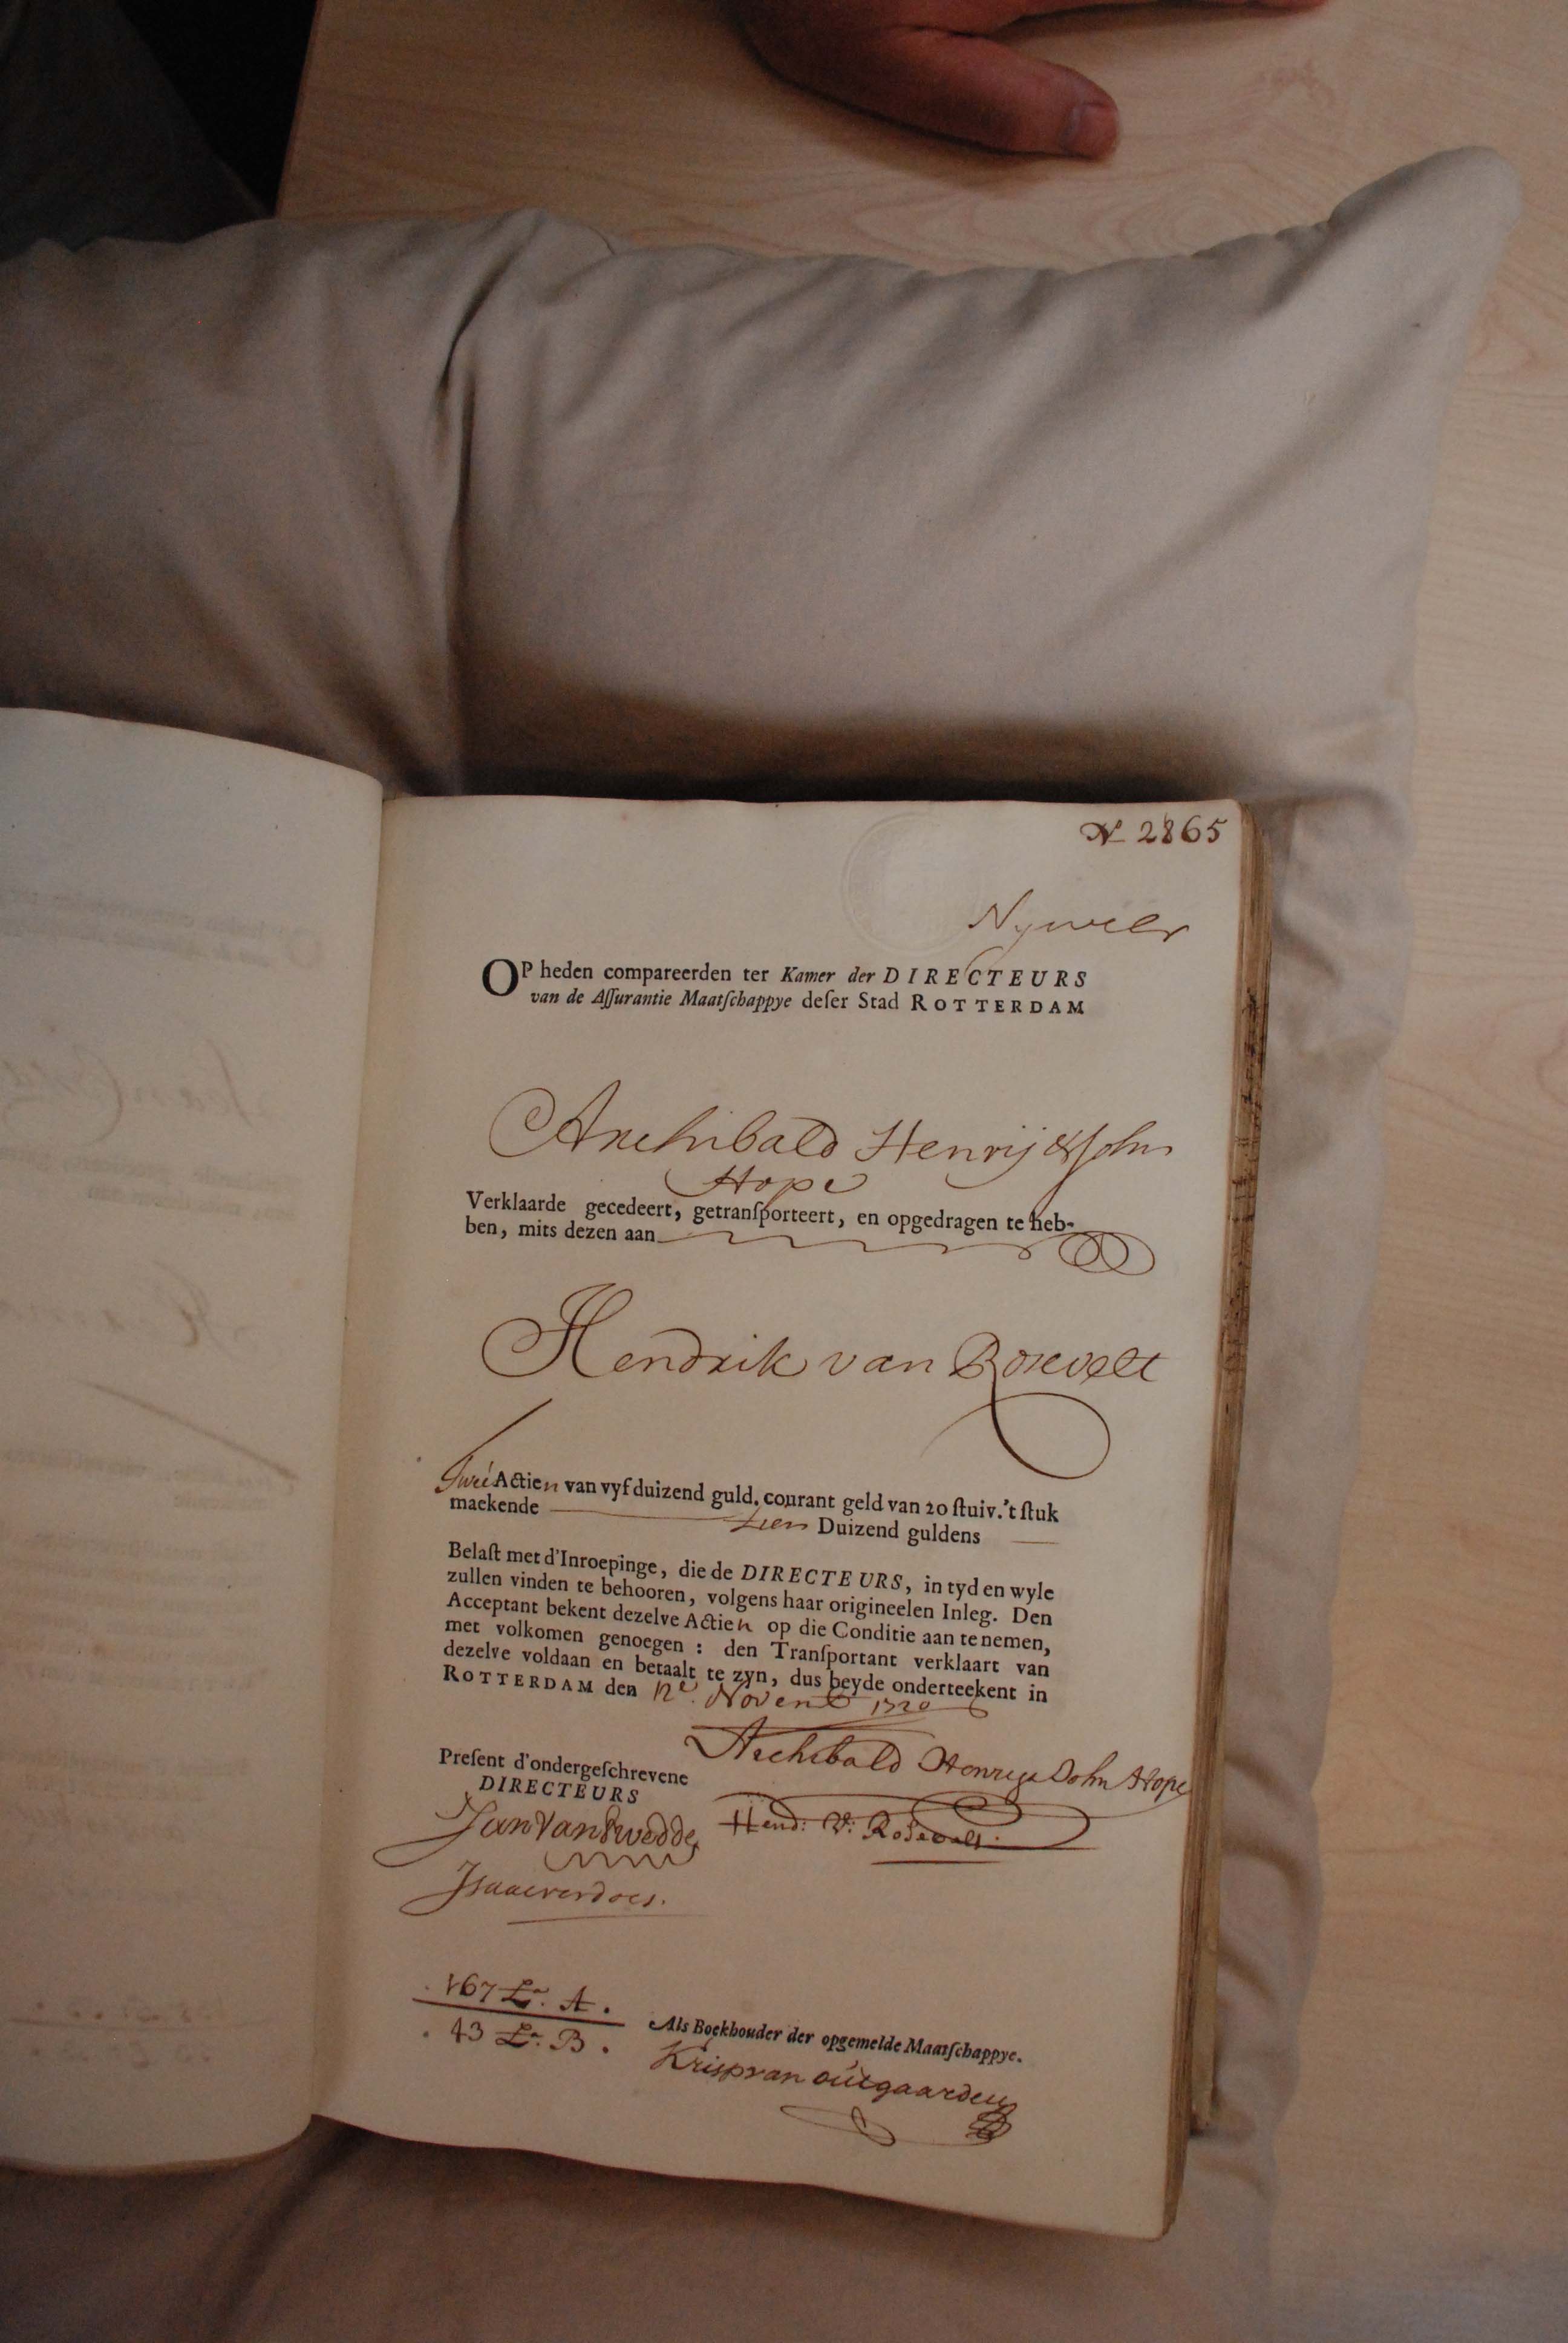 N 2865
Nyweer
OP heden compareerden ter Kamer der DIRECTEURS
van de Aſſurantie Maatſchappye deſer Stad ROTTERDAM
Archibald Henrij & John
Hope
Verklaarde gecedeert, getranſporteert, en opgedragen te heb-
ben, mits dezen aan
Hendrik van Rosevelt
Twee Actien van vyfduizend guld. courant geld van 20 ſtuiv. 't ſtuk
maekende tien Duizend guldens
Belaſt met d'Inroepinge, die de DIRECTEURS, in tyd en wyle
zullen vinden te behooren, volgens haar origineelen Inleg. Den
Acceptant bekent dezelve Actien op die Conditie aan te nemen,
met volkomen genoegen : den Tranſportant verklaart van
dezelve voldaan en betaalt te zyn, dus beyde onderteekent in
ROTTERDAM den 12e Novemb 1720
Archibald Henry & John Hope
Preſent d'ondergeſchrevene
DIRECTEURS
Hend: V: Rosevelt.
Jan Van Zwedde
Isaac verdoes.
167 La. A.
43 La. B.
Als Boekhouder der opgemelde Maatſchappye.
Krisp van outgaarden